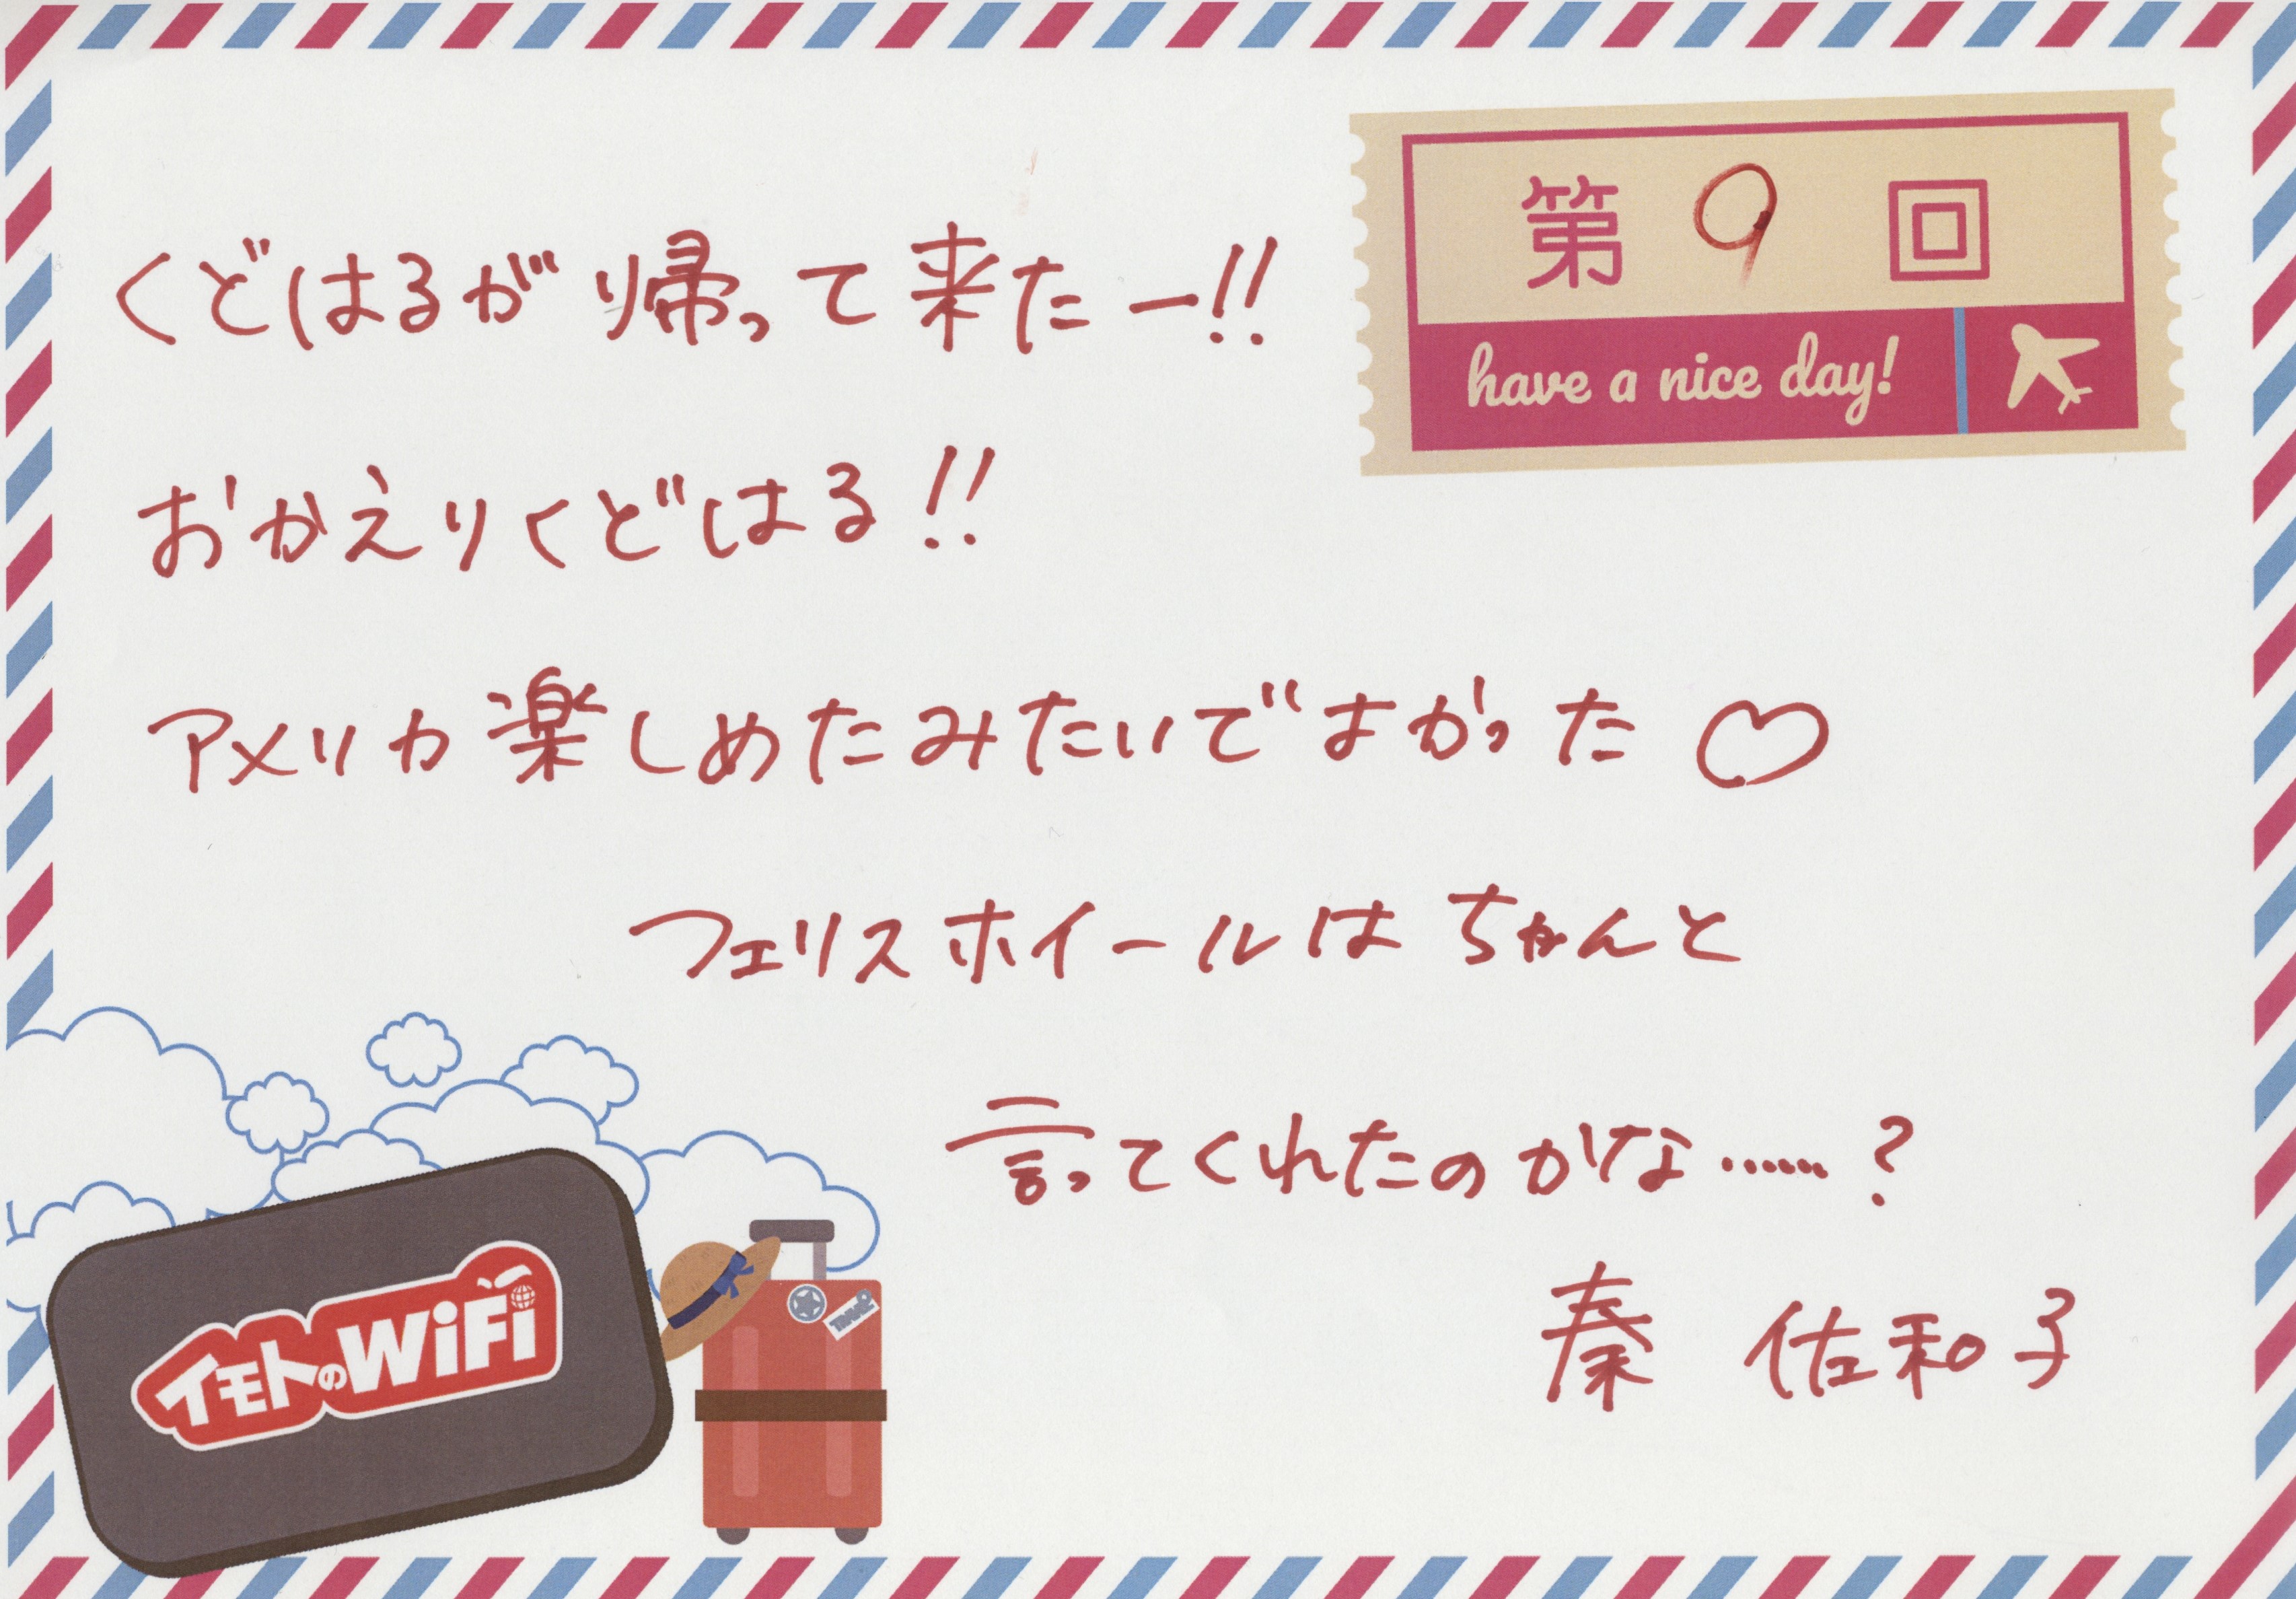 第 9 回
have a nice day!
くどはるが帰って来たー!!
おかえりくどはる!!
アメリカ楽しめたみたいでよかった♡
フェリスホイールはちゃんと
言ってくれたのかな……?
秦 佐和子
イモトのWiFi